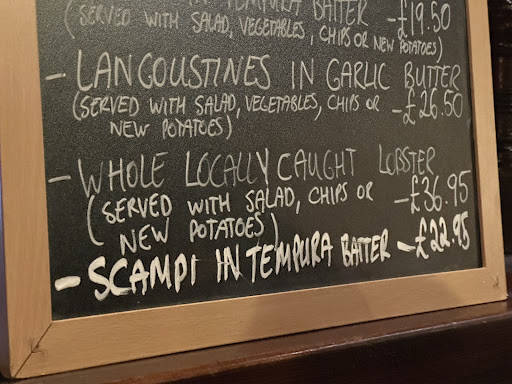 TEMPURA BATTER - £19.50
(SERVED WITH SALAD, VEGETABLES, CHIPS OR NEW POTATOES)
- LANGOUSTINES IN GARLIC BUTTER
(SERVED WITH SALAD, VEGETABLES, CHIPS OR - £26.50
NEW POTATOES)
- WHOLE LOCALLY CAUGHT LOBSTER
(SERVED WITH SALAD, CHIPS OR - £36.95
NEW POTATOES)
- SCAMPI IN TEMPURA BATTER - £22.95